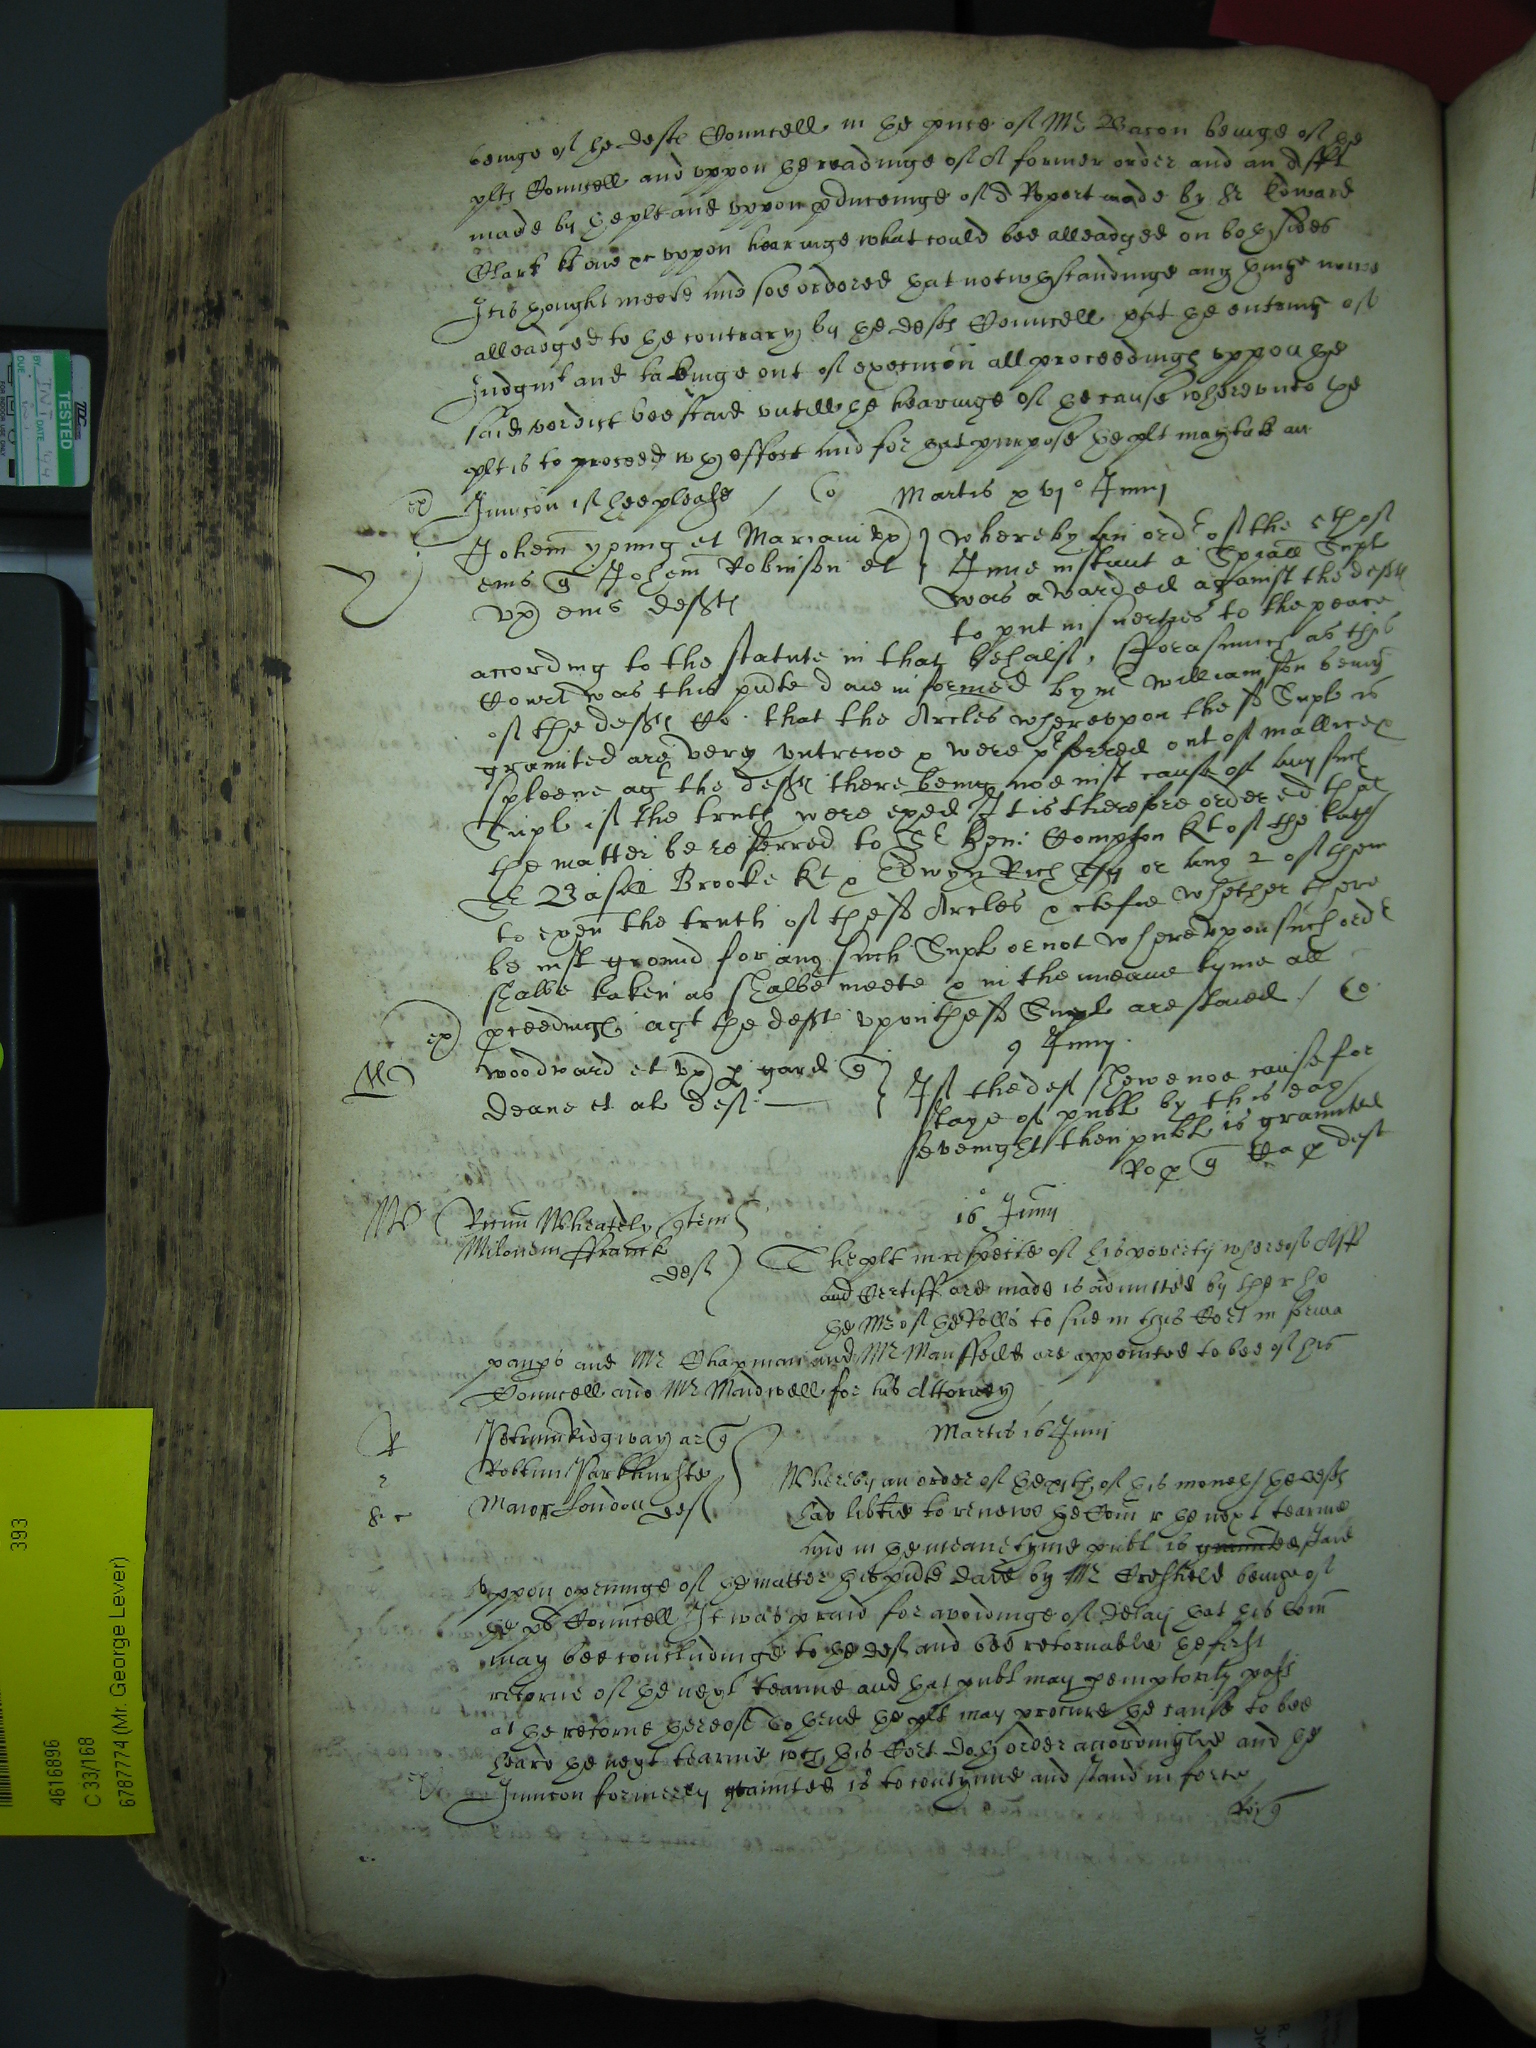 beinge of the deftes Councell in the pnce of Mr Bacon beinge of the
plts Councell and uppon the readinge of a former order and an Afft
made by the plt and uppon pducemge of a Report made by Sr Edward
Clark kt one &c uppon hearinge what could bee alleadged on both sides
It is thought meete and soe ordered that notwthstandinge any thinge nowe
alleadged to the contrary by the defts Councell that the entring of
Judgmt and takinge out of execucon all proceedings uppon the
said verdict bee staid untill the hearinge of the cause whereunto the
plt is to proceed wth effect and for that purpose the plt may take an
Iniuncon if hee please / Co
Martis xvjo Junij
Johem yonng et Mariam ux
eius q Johem Robinson et
ux eius defts
whereby an ordr of the 5th of
June instant a Spiall Supl
was awarded against the defts
to put in suerties to the peace
according to the statute in that behalf, fforasmuch as this
Court was this pnte daie informed by mr williamson being
of the defts Co. that the Arcles whereupon the sd Supl is
graunted are very untrewe & were pferred out of mallice &
spleene agt the defts there being noe iust cause of any such
Supl if the truth were exed It is therefore ordered that
the matter be referred to Sr Hen: Compton Kt of the bath
Sr Basill Brooke Kt & Edwyn Rich Esq or any 2 of them
to exen the truth of these Arcles & ctefie whether there
be iust ground for any such Supl or not whereupon such ordr
shalbe taken as shalbe meete & in the meane tyme all
pceedings agt the defts upon these Supl are staied / Co.
woodward et ux p gard q
Deane et al def
9 Junij
If the def shewe noe cause for
staye of publ by this day
sevenight then publ is graunted
Rop q Ca p deft
Ricum Wheately q
Milonem ffranck
def
16 Junij
The plt in respecte of his poverty whereof Aff
and Certiff are made is admitted by the r ho
the Mr of the Rolls to sue in this Cort in forma
paupis and Mr Chapman and Mr Manffeild are appointed to bee of his
Councell and Mr Maidwell for his Attorney
Petrum Ridgway ar q
Robtum Parkhurste
Maior London def
Martis 16 Junij
Whereby an order of the xjth of this moneth the defts
had libtie to renewe the Com r the next tearme
And in the meane tyme publ is graunted staid
Uppon openinge of the matter this pnte daie by Mr Creshield beinge of
the pts Councell It was praid for avoidinge of delay that this Com
may bee concludinge to the def and bee retornable the first
retorne of the next tearme and that publ may pemptorily passe
at the retorne thereof to thend the plt may procure the cause to bee
heard the next tearme wch this Cort doth order accordinglie and the
Iniuncon formerly graunted is to contynue and stand in force
TESTED
BY
DATE
DUE
393
4616896
C 33/168
6787774 (Mr. George Lever)